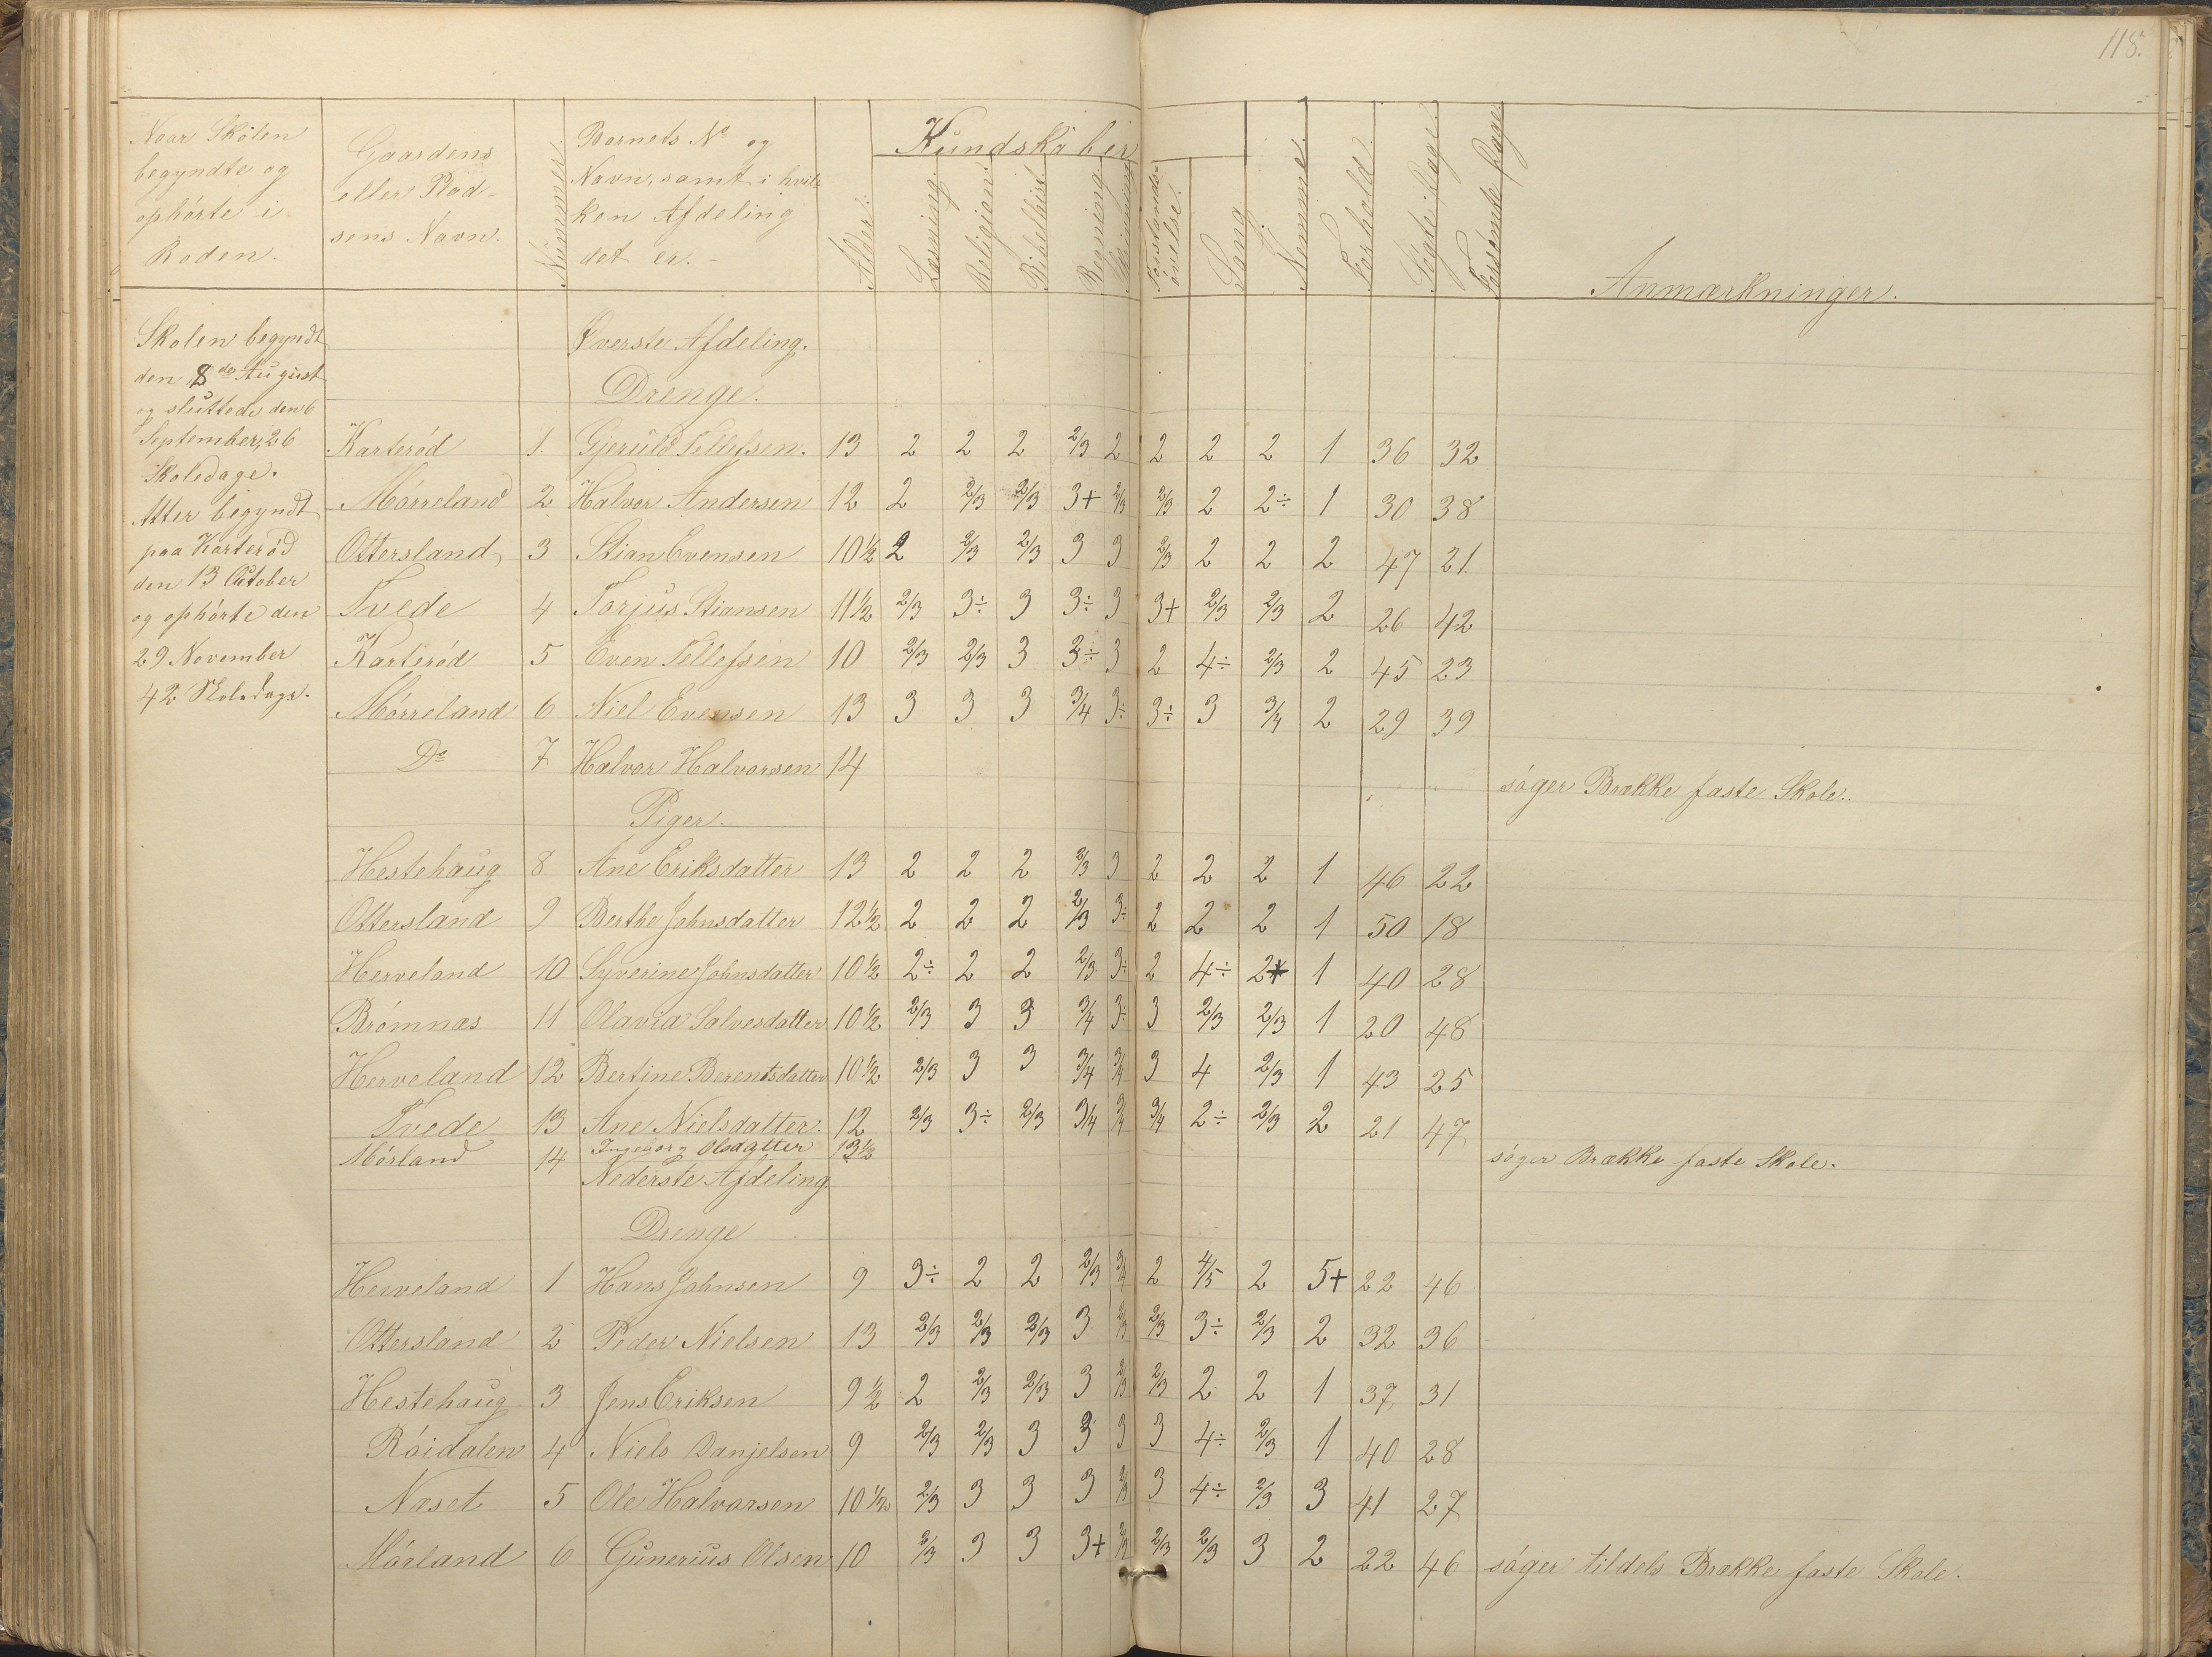 118.
Naar Skolen begyndte og ophörte i Roden.
Gaardens eller Plad-sens Navn.
Nummer.
Barnets No og Navn, samt i hvil-ken Afdeling det er.
Alder.
Kundskaber
Læsning.
Religjon.
Bibelhist.
Regning
Skrivning
Forstands-övelse.
Sang.
Nemme.
Forhold.
Sögte Dage.
Forsömte Dage.
Anmærkninger.
Skolen begyndt
den 8de August
og sluttede den 6
September, 26
Skoledage.
Atter begyndt
paa Karteröd
den 13 October
og ophörte den
29 November
42 Skoledage.
Øverste Afdeling.
Drenge.
Karteröd 1. Gjeruld Tellefsen. 13 2 2 2 2/3 2 2 2 2 1 36 32
Mörreland 2 Halvor Andersen 12 2 2/3 2/3 3+ 2/3 2/3 2 2÷ 1 30 38
Ottersland, 3 Stian Evensen 10½ 2 2/3 2/3 3 3 2/3 2 2 2 47 21
Tvede 4 Torjus Stiansen 11½ 2/3 3÷ 3 3÷ 3 3+ 2/3 2/3 2 26 42
Karteröd 5 Even Tellefsen 10 2/3 2/3 3 3÷ 3 2 4÷ 2/3 2 45 23
Mörreland 6 Niel Evensen 13 3 3 3 3/4 3÷ 3÷ 3 3/4 2 29 39
Do 7 Halvor Halvorsen 14 söger Brække faste Skole..
Piger.
Hestehaug 8 Ane Eriksdatter 13 2 2 2 2/3 3 2 2 2 1 46 22
Ottersland 9 Berthe Johnsdatter 12½ 2 2 2 2/3 3÷ 2 2 2 1 50 18
Herveland 10 Syverine Johnsdatter 10½ 2÷ 2 2 2/3 3÷ 2 4÷ 2+ 1 40 28
Brömnæs 11 Olavia Salvesdatter 10½ 2/3 3 3 3/4 3÷ 3 2/3 2/3 1 20 48
Herveland 12 Bertine Berentsdatter 10½ 2/3 3 3 3/4 3/4 3 4 2/3 1 43 25
Tvede 13 Ane Nielsdatter. 12 2/3 3÷ 2/3 3/4 3/4 3/4 2÷ 2/3 2 21 47
Mörland 14 Ingeborg Olsdatter 13½ söger Brække faste Skole.
Nederste Afdeling
Drenge
Herveland 1 Hans Johnsen 9 3÷ 2 2 2/3 3/4 2 4/5 2 5+ 22 46
Ottersland 2 Peder Nielsen 13 2/3 2/3 2/3 3 2/3 2/3 3÷ 2/3 2 32 36
Hestehaug 3 Jens Eriksen 9½ 2 2/3 2/3 3 2/3 2/3 2 2 1 37 31
Röidalen 4 Niels Danjelsen 9 2/3 2/3 3 3 3 3 4÷ 2/3 1 40 28
Næset 5 Ole Halvorsen 10½ 2/3 3 3 3 2/3 3 4÷ 2/3 3 41 27
Mörland 6 Gunerius Olsen 10 2/3 3 3 3+ 2/3 2/3 2/3 3 2 22 46 söger tildels Brække faste Skole.